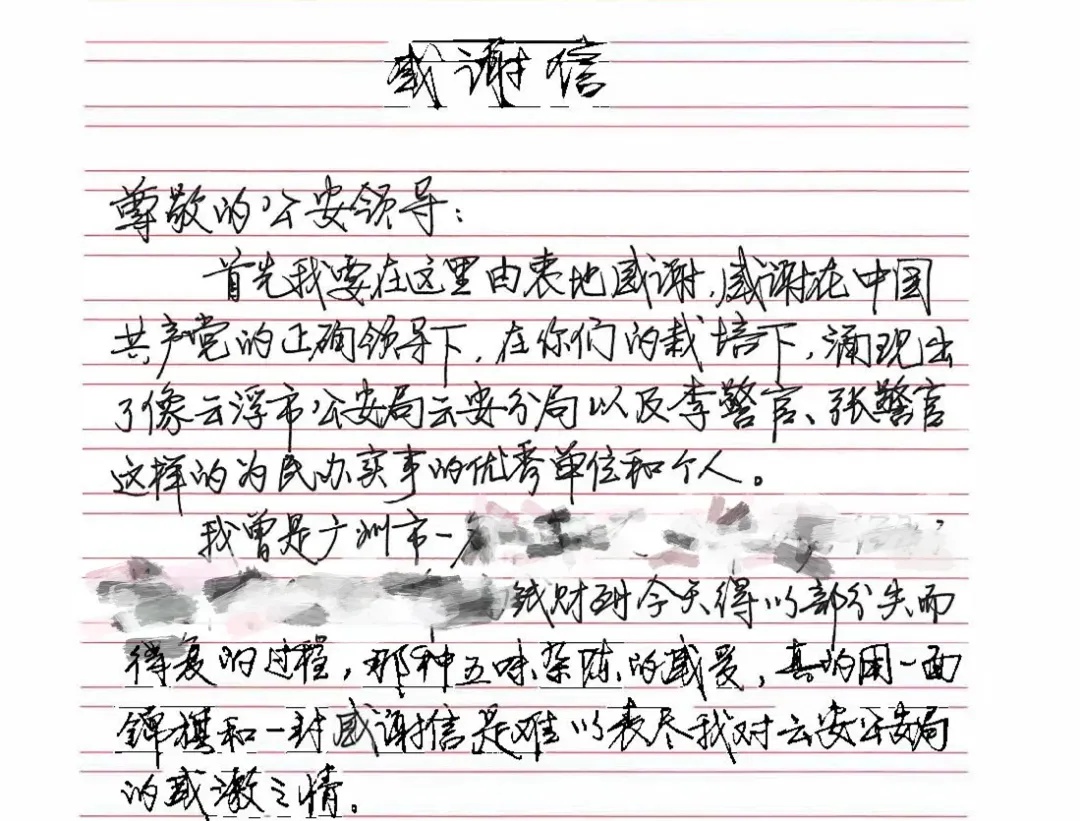 感谢信
尊敬的公安领导：
首先我要在这里由衷地感谢，感谢在中国
共产党的正确领导下，在你们的栽培下，涌现出
了像云浮市公安局云安分局以及李警官、张警官
这样的为民办实事的优秀单位和个人。
我曾是广州市一名
钱财到今天得以部分失而
得复的过程，那种五味杂陈的感受，真的用一面
锦旗和一封感谢信是难以表尽我对云安公安局
的感激之情。